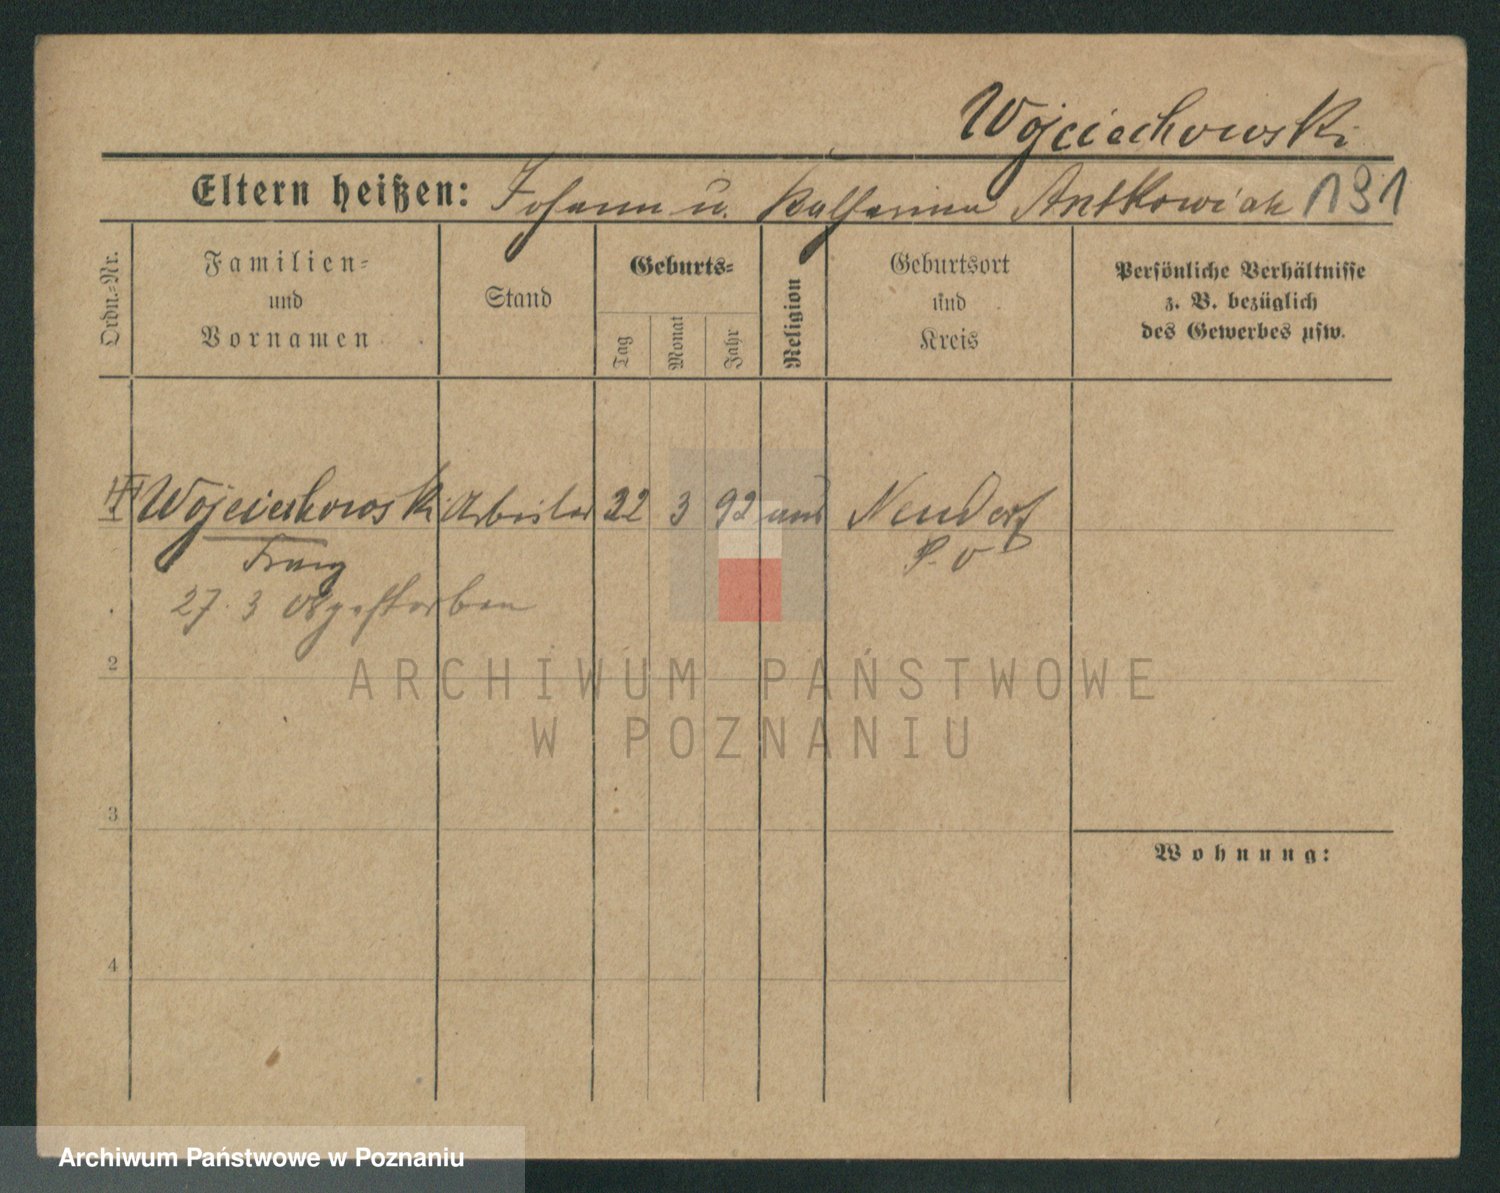 Wojciechowski
Eltern heißen: Johann u. Katharina Antkowiak 131
Ordn.-Nr.
Familien-
und
Vornamen
Stand
Geburts-
Tag
Monat
Jahr
Religion
Geburtsort
und
Kreis
Persönliche Verhältnisse
z. B. bezüglich
des Gewerbes usw.
Wojciechowski Arbeiter 22 3 92 Neudorf
Franz P. O
27. 3 abgestorben
2
3
4
Wohnung:
ARCHIWUM PAŃSTWOWE
W POZNANIU
Archiwum Państwowe w Poznaniu